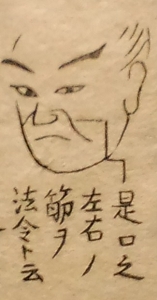 是口之
左右ノ
筋ヲ
法令ト云